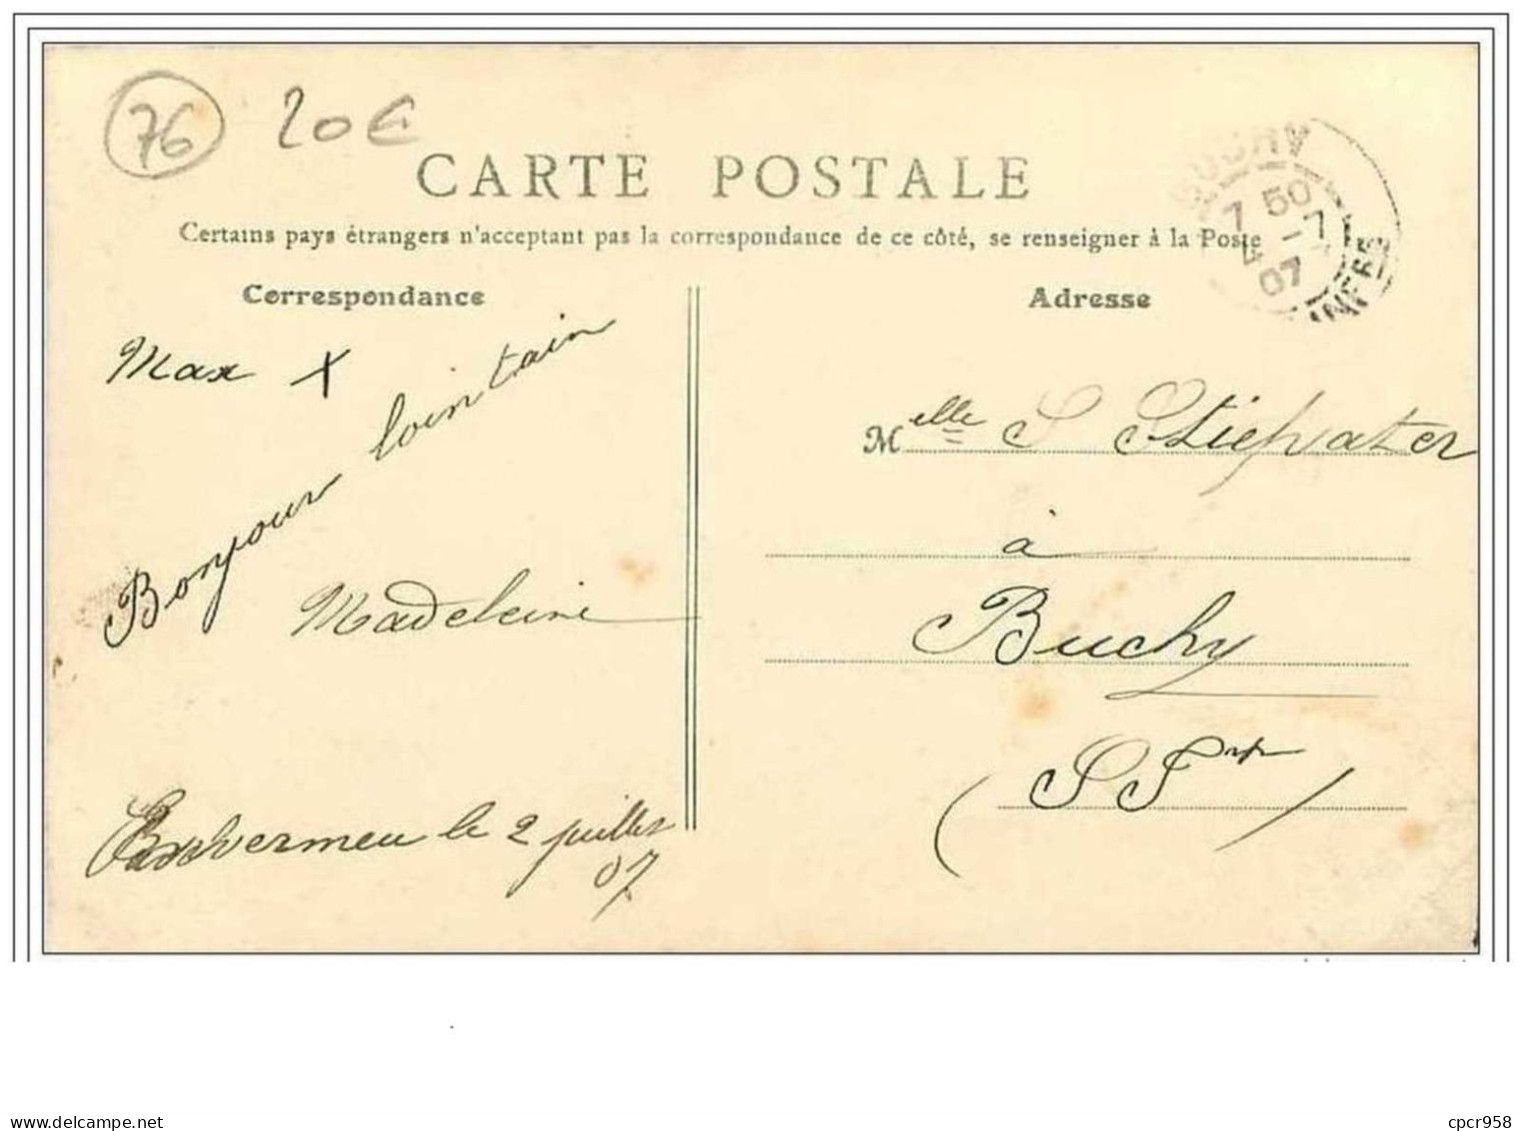 76 20€
CARTE POSTALE
Certains pays étrangers n'acceptant pas la correspondance de ce côté, se renseigner à la Poste
BUCHY
7 50
4 -7
07
INFRE
Correspondance
Max X
Bonjour lointain
Madeleine
Envermeu le 2 juillet
07
Adresse
Melle S Stiefvater
à
Buchy
(S Inf)
cpcr958